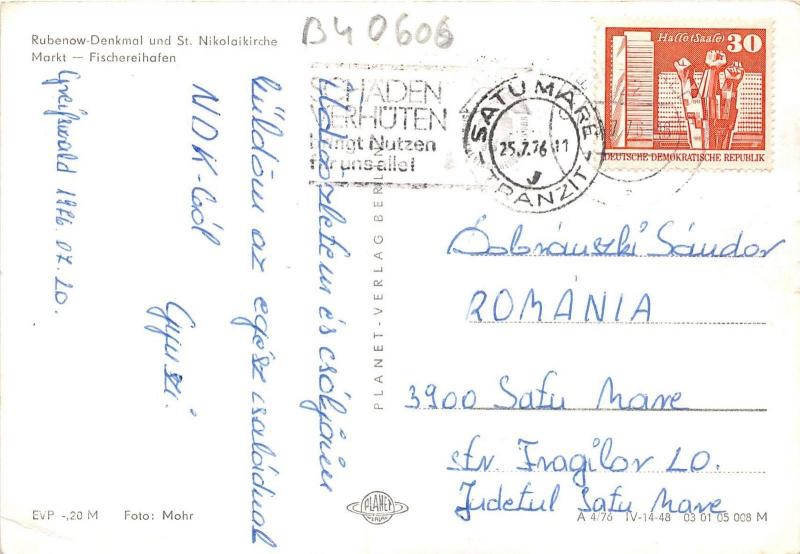 B40606
Rubenow-Denkmal und St. Nikolaikirche
Markt — Fischereihafen
SCHÄDEN
VERHÜTEN
bringt Nutzen
für uns alle!
SATU MARE
25.7.76 11
TRANZIT
Halle (Saale) 30
DEUTSCHE DEMOKRATISCHE REPUBLIK
Üdvözletem és csókjaim
küldöm az egész családnak
NDK-ból
Gyuszi.
Greifswald 1976. 07. 20.
PLANET-VERLAG BERLIN
Dobránszki Sándor
ROMÁNIA
3900 Satu Mare
str. Fragilor 20.
Judetul Satu Mare
EVP -,20 M Foto: Mohr
PLANET
VERLAG
A 4/76 IV-14-48 03 01 05 008 M